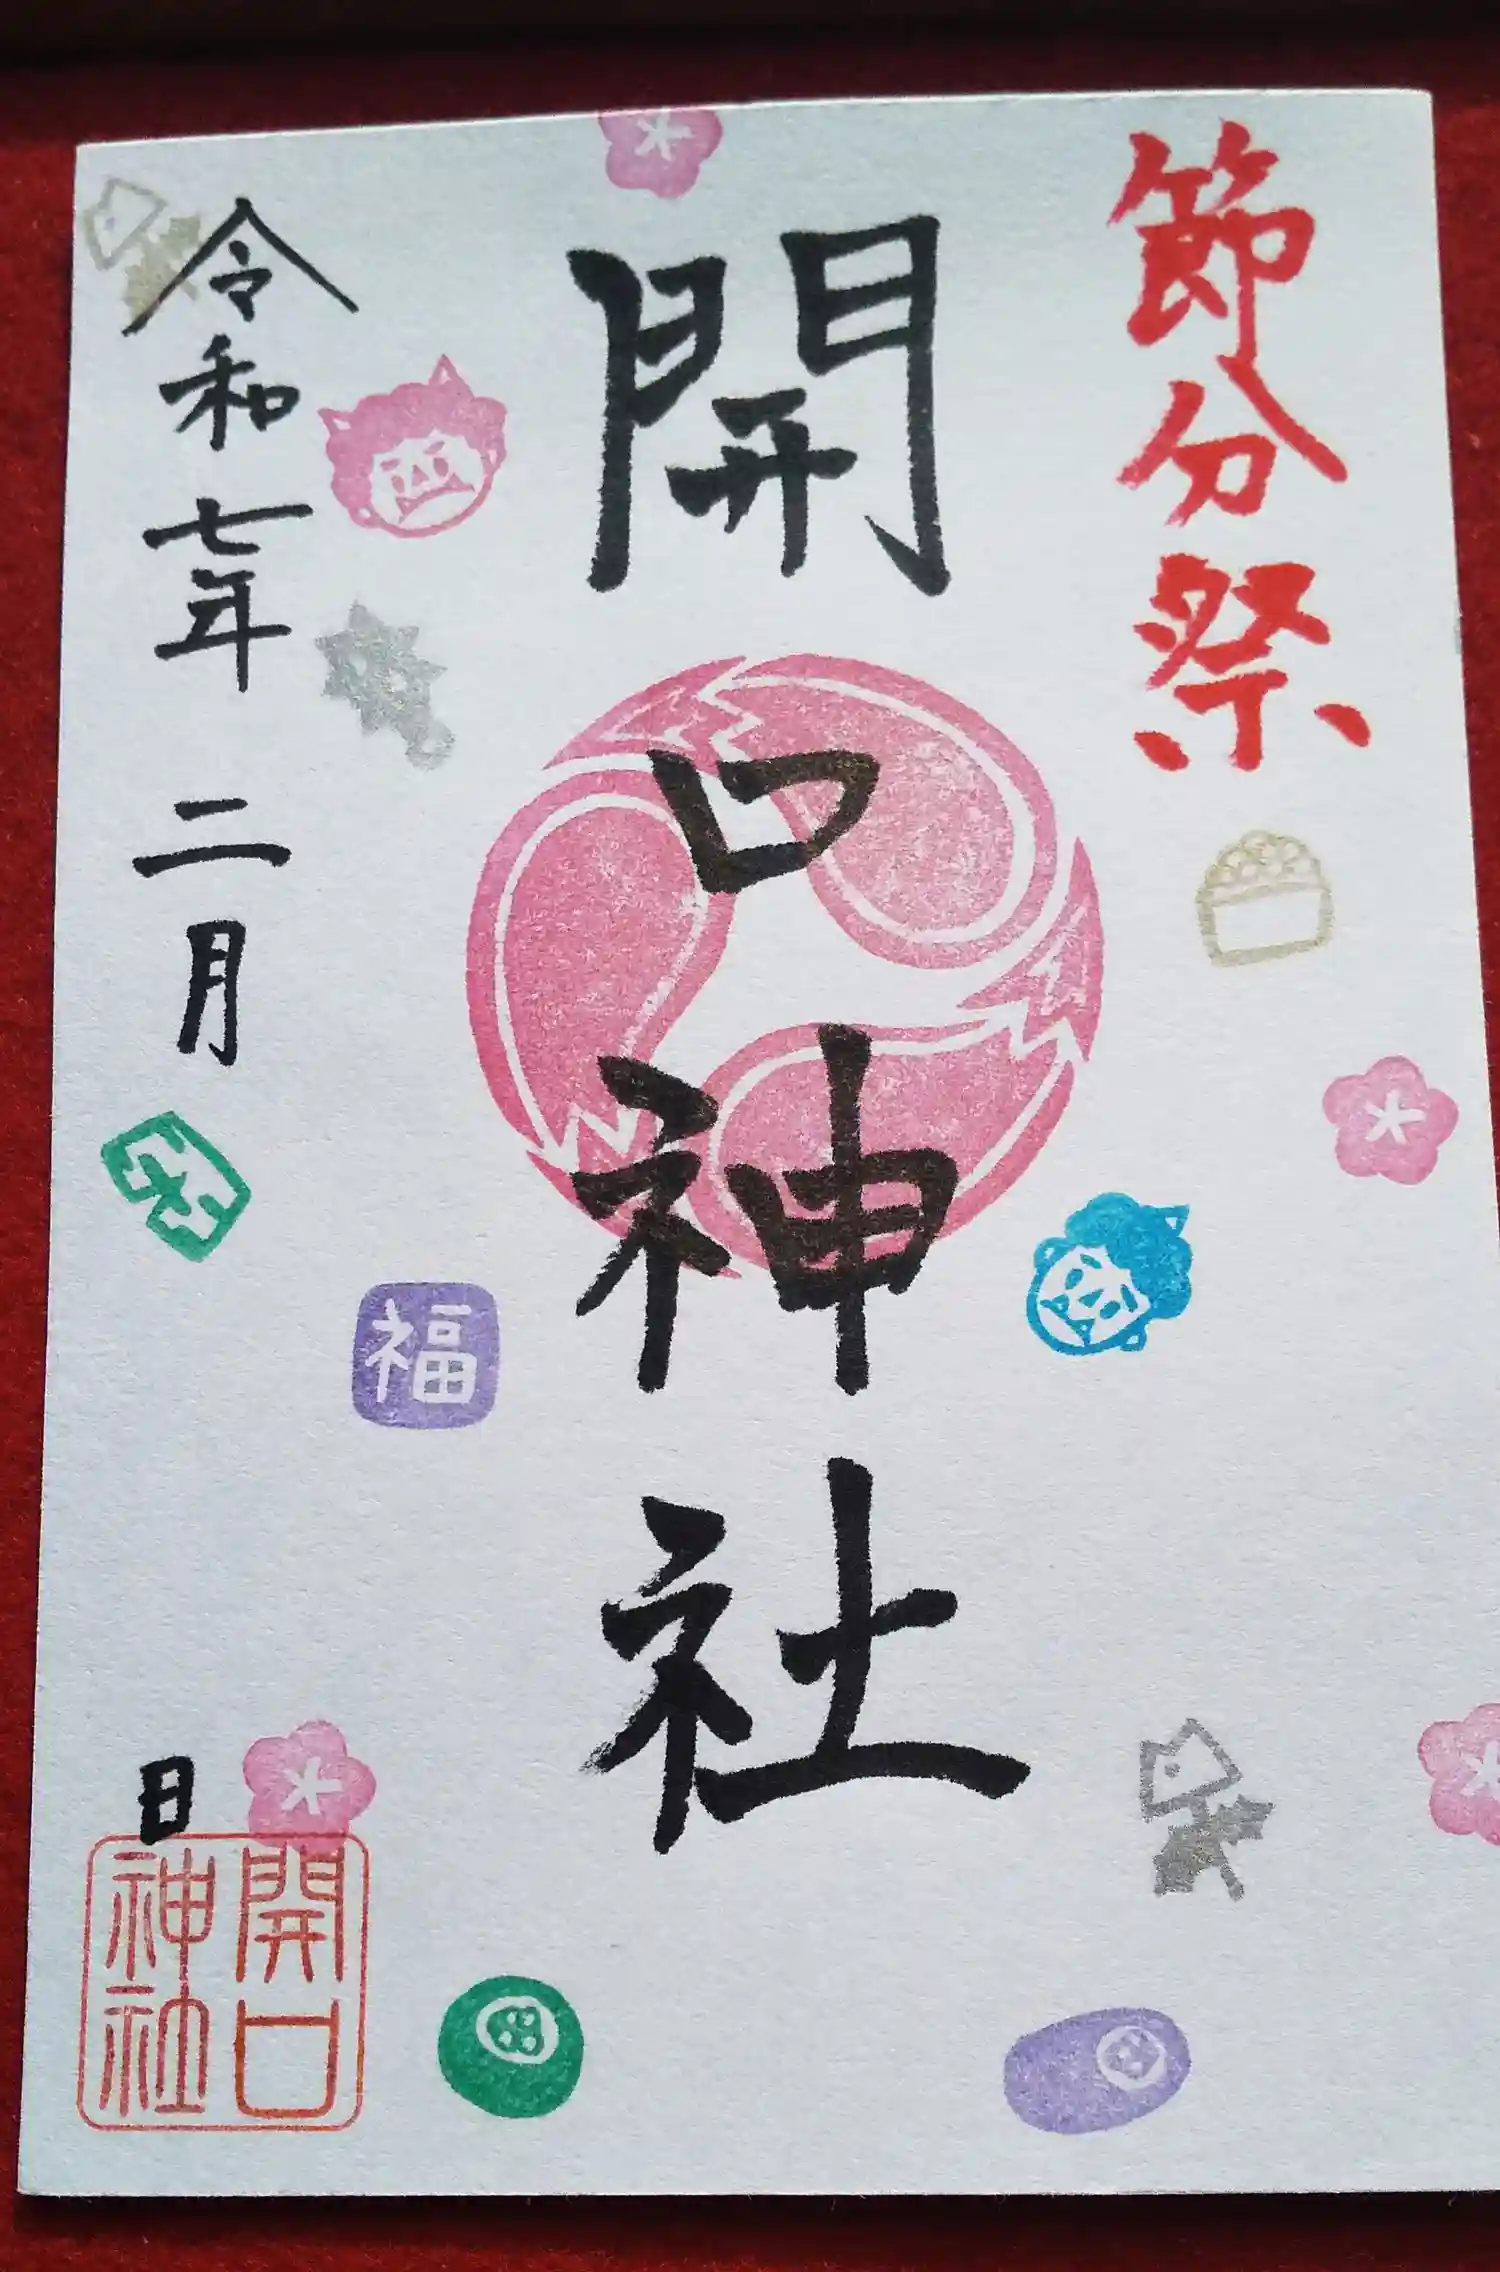 節分祭
開口神社
令和七年二月 日
福
開口
神社